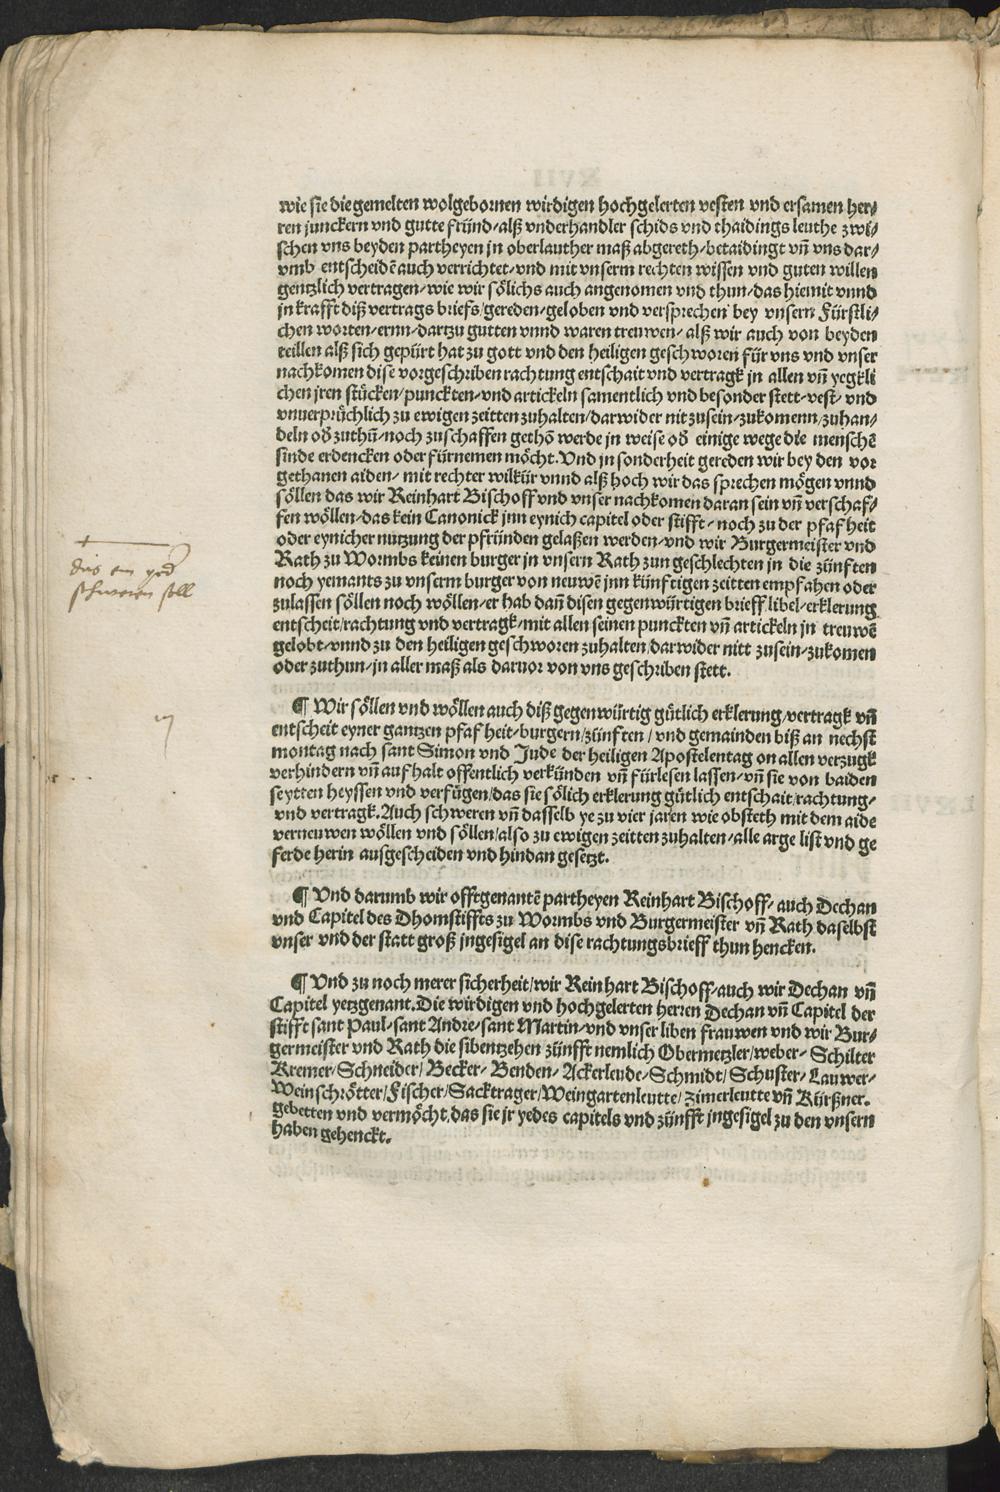 wie sie die gemelten wolgebornen wirdigen hochgelerten vesten vnd ersamen her⸗
ren junckern vnd gutte fründ/alß vnderhandler schids vnd thaidings leuthe zwi⸗
schen vns beyden partheyen jn oberlauther maß abgereth/betaidingt vñ vns dar⸗
vmb entscheidē auch verrichtet/vnd mit vnserm rechten wissen vnd guten willen
gentzlich vertragen/wie wir sölichs auch angenomen vnd thun/das hiemit vnnd
jn krafft diß vertrags briefs/gereden/geloben vnd versprechen bey vnsern Fürstli⸗
chen worten/ernn/dartzu gutten vnnd waren treuwen/ alß wir auch von beyden
teillen alß sich gepürt hat zu gott vnd den heiligen geschworen für vns vnd vnser
nachkomen dise vorgeschriben rachtung entschait vnd vertragk jn allen vñ yegkli
chen jren stücken/punckten/vnd artickeln samentlich vnd besonder stett/vest/ vnd
vnuerprüchlich zu ewigen zeitten zuhalten/darwider nit zusein/zukomenn/zuhan⸗
deln od̕ zuthū/noch zuschaffen gethō werde jn weise od̕ einige wege die menschē
sinde erdencken oder fürnemen möcht. Vnd jn sonderheit gereden wir bey den vor
gethanen aiden/ mit rechter wilkür vnnd alß hoch wir das sprechen mögen vnnd
söllen das wir Reinhart Bischoff vnd vnser nachkomen daran sein vñ verschaf⸗
fen wöllen/das kein Canonick jnn eynich capitel oder stifft/ noch zu der pfafheit
oder eynicher nutzung der pfründen gelaßen werden/vnd wir Burgermeister vnd
Rath zu Wormbs keinen burger jn vnsern Rath zun geschlechten jn die zünften
noch yemants zu vnserm burger von neuwē jnn künftigen zeitten empfahen oder
zulassen söllen noch wöllen/er hab dañ disen gegenwürtigen brieff libel/erklerung
entscheit/rachtung vnd vertragk/mit allen seinen punckten vñ artickeln jn treuwē
gelobt/vnnd zu den heiligen geschworen zuhalten/darwider nitt zusein/zukomen
oder zuthun/jn aller maß als daruor von vns geschriben stett.
das ein yed
schweren soll
¶ Wir söllen vnd wöllen auch diß gegenwürtig gütlich erklerung/vertragk vñ
entscheit eyner gantzen pfafheit/burgern/zünften/ vnd gemainden biß an nechst
montag nach sant Simon vnd Jude der heiligen Apostelentag on allen verzugk
verhindern vñ aufhalt offentlich verkünden vñ fürlesen lassen/vñ sie von baiden
seytten heyssen vnd verfügen/das sie sölich erklerung gütlich entschait/rachtung/
vnd vertragk. Auch schweren vñ dasselb ye zu vier jaren wie obsteth mit dem aide
verneuwen wöllen vnd söllen/also zu ewigen zeitten zuhalten/alle arge list vnd ge
ferde herin ausgescheiden vnd hindan gesetzt.
¶ Vnd darumb wir offtgenantē partheyen Reinhart Bischoff/ auch Dechan
vnd Capitel des Dhomstiffts zu Wormbs vnd Burgermeister vñ Rath daselbst
vnser vnd der statt groß jngesigel an dise rachtungsbrieff thun hencken.
¶ Vnd zu noch merer sicherheit/wir Reinhart Bischoff/auch wir Dechan vñ
Capitel yetzgenant. Die wirdigen vnd hochgelerten herren Dechan vñ Capitel der
stifft sant Paul/sant Andre/sant Martin/vnd vnser liben frauwen vnd wir Bur⸗
germeister vnd Rath die sibentzehen zünfft nemlich Obermetzler/weber/ Schilter
Kremer/Schneider/ Becker/ Benden/ Ackerleude/Schmidt/ Schuster/ Lauwer/
Weinschrötter/Fischer/Sacktrager/Weingartenleutte/ zimerleutte vñ Kürßner.
gebetten vnd vermöcht. das sie jr yedes capitels vnd zünfft jngesigel zu den vnsern
haben gehenckt.